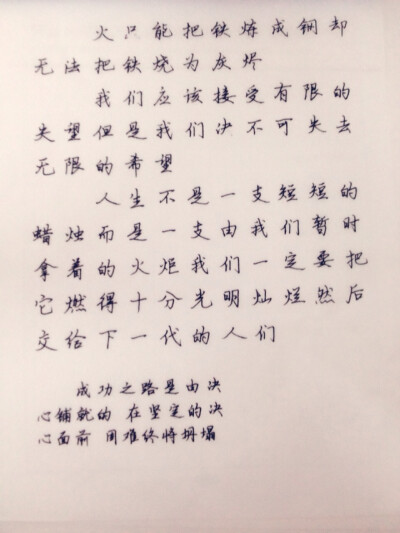 火只能把铁炼成钢却
无法把铁烧为灰烬
我们应该接受有限的
失望但是我们决不可失去
无限的希望
人生不是一支短短的
蜡烛而是一支由我们暂时
拿着的火炬我们一定要把
它燃得十分光明灿烂然后
交给下一代的人们
成功之路是由决
心铺就的 在坚定的决
心面前 困难终将坍塌